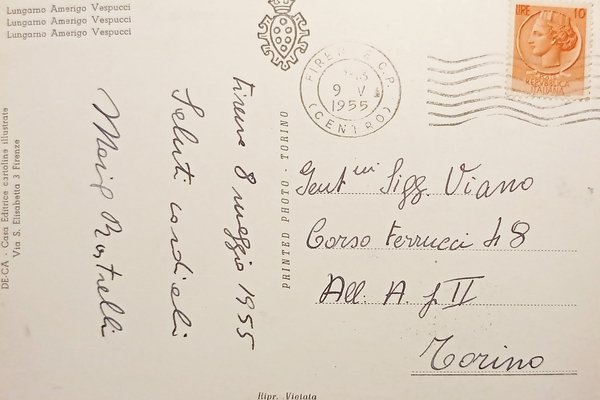 Lungarno Amerigo Vespucci
Lungarno Amerigo Vespucci
Lungarno Amerigo Vespucci
DE-CA - Casa Editrice cartoline illustrate
Via S. Elisabetta 3 Firenze
Firenze 8 maggio 1955
Saluti cordiali
PRINTED PHOTO - TORINO
FIRENZE C.P.
9 V
1955
(CENTRO)
LIRE 10
REPVBBLICA
ITALIANA
Gent mi Sigg. Viano
Corso Ferrucci 48
All. A. f II
Torino
Ripr. Vietata